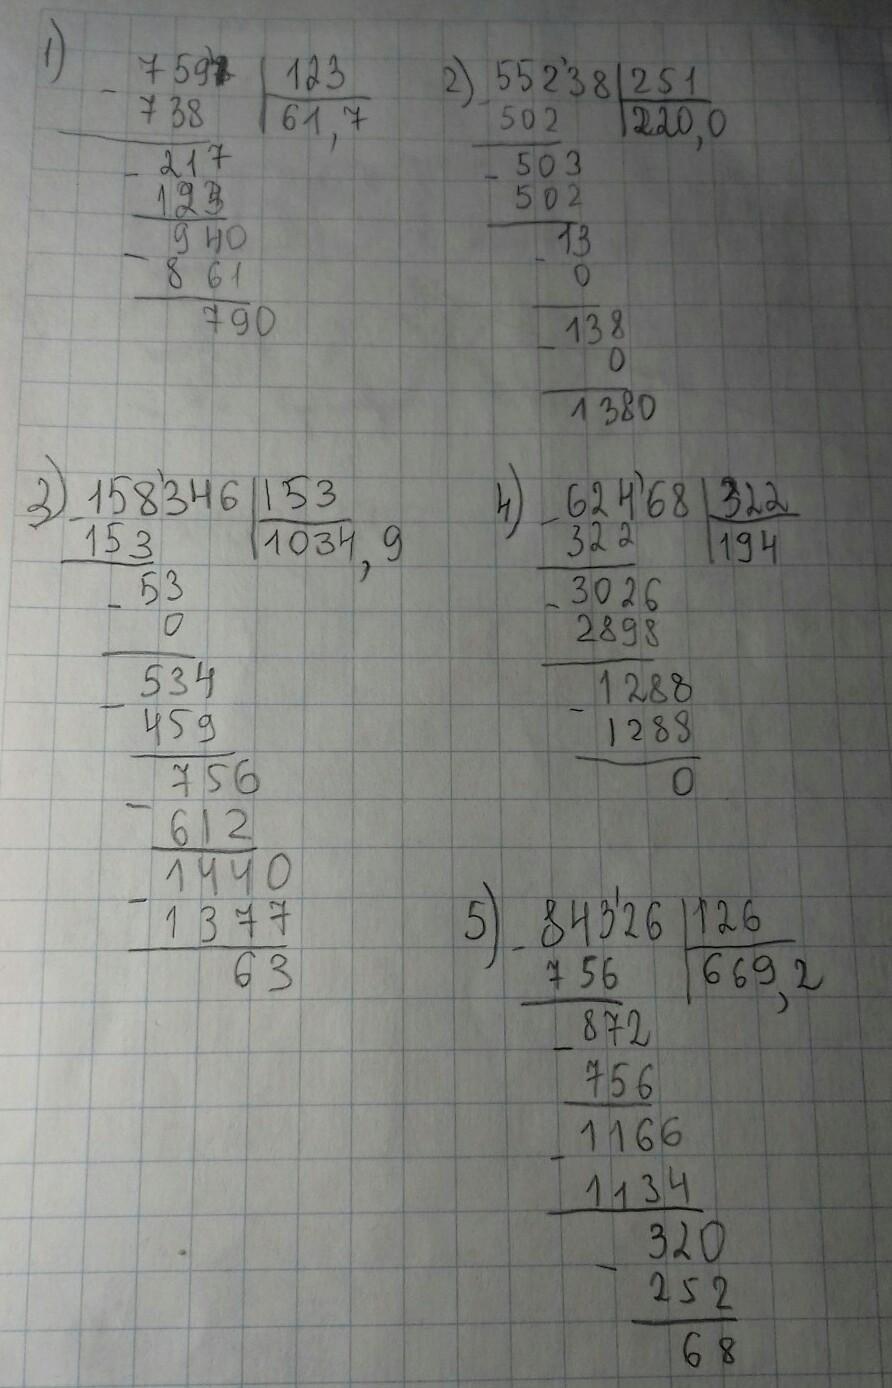 1)
7597 | 123
- 738 | 61,7
- 217
123
- 940
861
790
2) 55238 | 251
- 502 | 220,0
- 503
502
- 13
0
- 138
0
1380
3) - 158346 | 153
153 | 1034,9
- 53
0
- 534
459
- 756
612
- 1440
1377
63
4) - 624'68 | 322
322 | 194
- 3026
2898
- 1288
1288
0
5) - 843'26 | 126
756 | 669,2
- 872
756
- 1166
1134
- 320
252
68